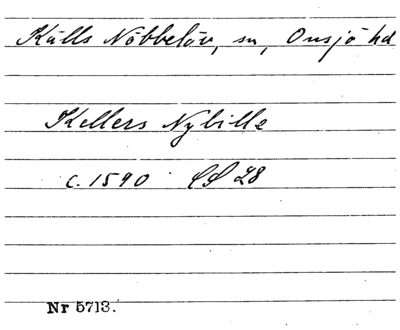 Källs Nöbbelöv, sn, Onsjö hd
Kellers Nybille
c. 1590 LS 28
Nr 5713.